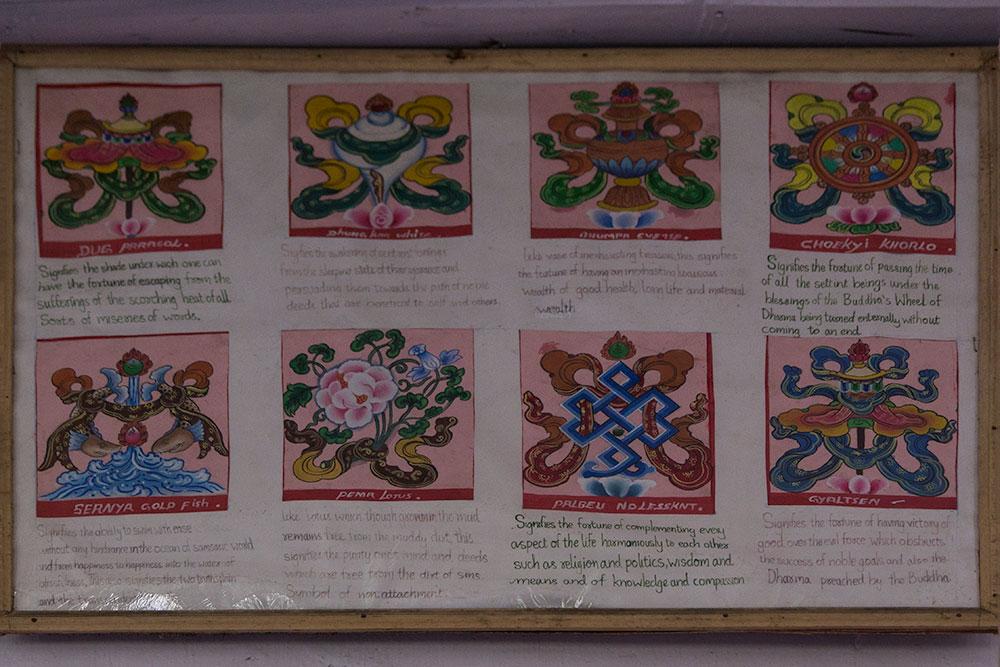 DUG PARASOL.
Signifies the shade under wich one can
have the fortune of escaping from the
sufferings of the scorching heat of all
Sorts of miseries of words.
Dhung kar white.
Signifies the awakening of sentient beings
from the sleeping state of their ignorance and
persuading them towards the path of noble
deeds that are beneficial to self and others.
BHUMPA
Like vase of inexhausting treasure, this signifies
the fortune of having an inexhausting luxurious
wealth of good health, long life and material
wealth
CHOEKYI KHORLO.
Signifies the fortune of passing the time
of all the setient beings under the
blessings of the Buddha's Wheel of
Dharma being turned enternally without
coming to an end.
SERNYA GOLD Fish.
Signifies the ability to swim with ease
without any hindrance in the ocean of samsaric world
and from happiness to happiness into the water of
this also signifies the two
and the
PEMA LOTUS.
like Lotus which though grown in the mud
remains free from the muddy dirt, this
signifies the purity one's mind and deeds
which are free from the dirt of sins.
Symbol of non attachment.
PALBEU NOLESSKNT.
Signifies the fortune of complementing every
aspect of the life harmoniously to each other
such as religion and politics, wisdom and
means and of knowledge and compassion
GYALTSEN
Signifies the fortune of having victory of
good over the evil force which obstructs
the success of noble goals and also the
Dharma preached by the Buddha.